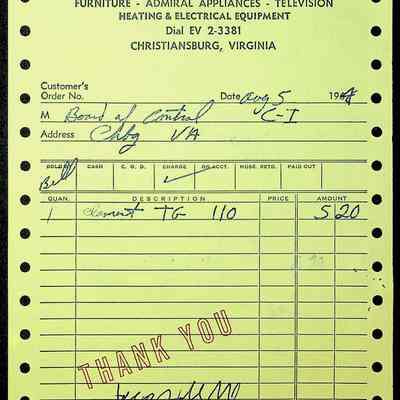 FURNITURE - ADMIRAL APPLIANCES - TELEVISION
HEATING & ELECTRICAL EQUIPMENT
Dial EV 2-3381
CHRISTIANSBURG, VIRGINIA
Customer's
Order No. Date Aug 5 196
M Board of Control C-I
Address Chbg VA
SOLD BY CASH C. O. D. CHARGE ON ACCT. MDSE. RETD. PAID OUT
Bell ✓
QUAN. DESCRIPTION PRICE AMOUNT
1 Element TG 110 5 20
THANK YOU